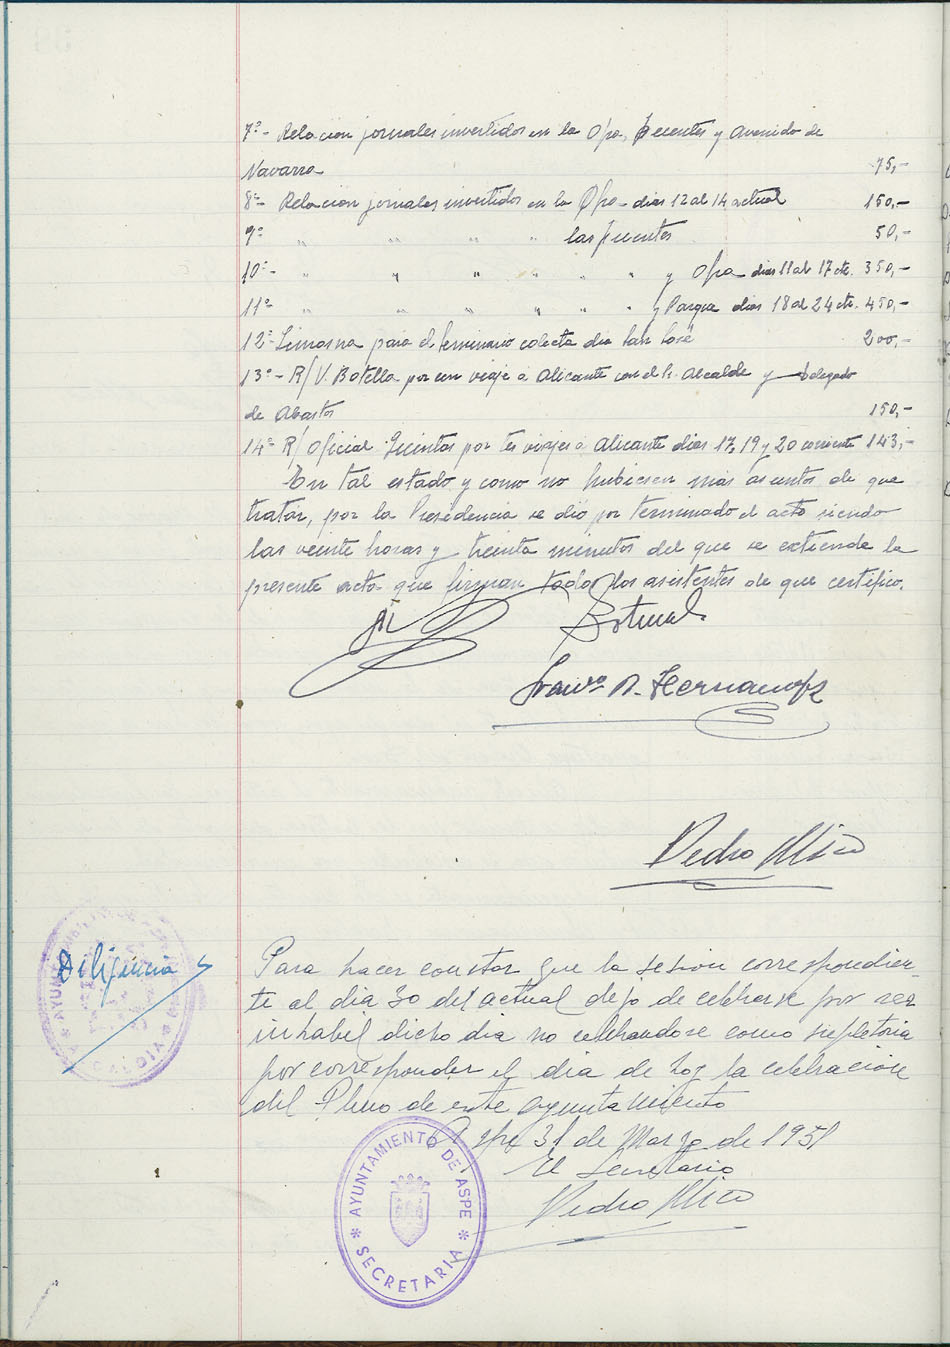 7º- Relacion jornales invertidos en la Ofra, fuentes y Avenida de
Navarro 75,-
8º- Relacion jornales invertidos en la Ofra dias 12 al 14 actual 150,-
9º " " " " las fuentes 50,-
10º- " " " " " " y Ofra dias 11 al 17 cte. 350,-
11º- " " " " " " y Parque dias 18 al 24 cte. 450,-
12º Limosna para el seminario colecta dia San José 200,-
13º- R/ V. Botella por un viaje a Alicante con el Sr. Alcalde y Delegado
de Abastos 150,-
14º R/ Oficial Quintas por tes viajes a Alicante dias 17, 19 y 20 corriente 143,-
En tal estado y como no hubiesen mas asuntos de que
tratar, por la Presidencia se dio por terminado el acto siendo
las veinte horas y treinta minutos del que se extiende la
presente acta que firman todos los asistentes de que certifico.
Franco A. Hernandez
Pedro Mico
Diligencia
Para hacer constar que la sesion correspondien-
te al dia 30 del actual dejo de celebrarse por ser
inhabil dicho dia no celebrandose como supletoria
por corresponder el dia de hoy la celebracion
del Pleno de este Ayuntamiento
Aspe 31 de Marzo de 1951
El Secretario
Pedro Mico
AYUNTAMIENTO DE ASPE
* SECRETARIA *
* ALCALDIA *